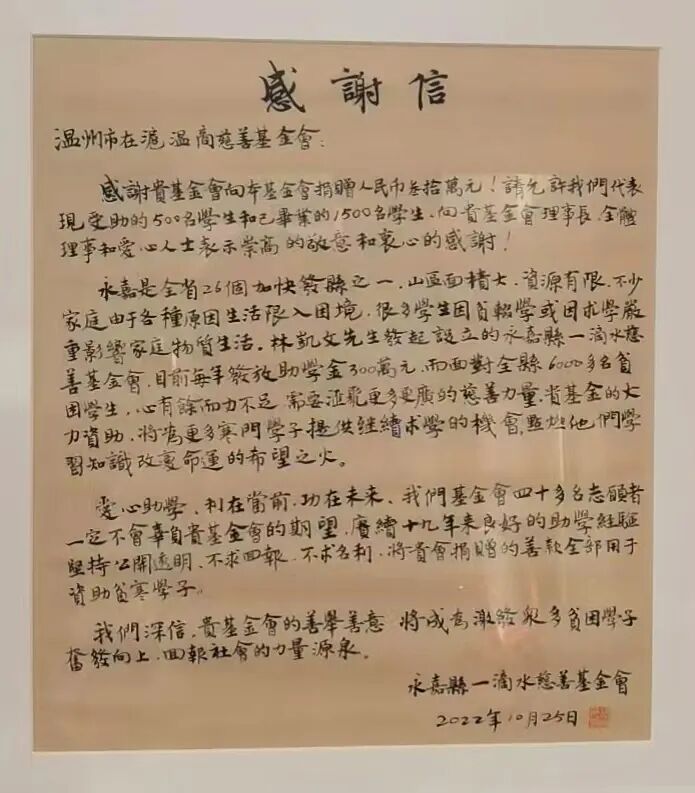 感謝信
温州市在滬温商慈善基金會：
感謝貴基金會向本基金會捐贈人民币叁拾萬元！請允許我們代表
現受助的500名學生和已畢業的1500名學生，向貴基金會理事長、全體
理事和愛心人士表示崇高的敬意和衷心的感謝！
永嘉是全省26個加快發縣之一，山區面積大，資源有限，不少
家庭由于各種原因生活限入困境，很多學生因貧輟學或因求學嚴
重影響家庭物質生活。林凱文先生發起設立的永嘉縣一滴水慈
善基金會，目前每年發放助學金300萬元，而面對全縣6000多名貧
困學生，心有餘而力不足，需要滙聚更多更廣的慈善力量，貴基金的大
力資助，將為更多寒門學子提供继續求學的機會，點燃他們學
習知識改變命運的希望之火。
愛心助學、利在當前，功在未来、我們基金會四十多名志願者
一定不會辜負貴基金會的期望，賡續十九年来良好的助學經驗
堅持公開透明、不求回報、不求名利，將貴會捐贈的善款全部用于
資助貧寒學子。
我們深信，貴基金會的善舉善意，將成為激發衆多貧困學子
奮發向上，回報社會的力量源泉。
永嘉縣一滴水慈善基金會
2022年10月25日